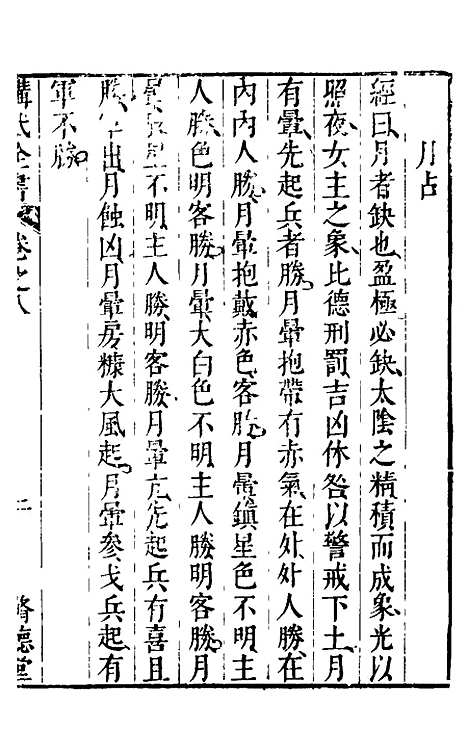 月占
經曰月者缺也盈極必缺太陰之精積而成象光以
照夜女主之象比德刑罰吉凶休咎以警戒下土月
有暈先起兵者勝月暈抱帶有赤氣在外外人勝在
內內人勝月暈抱戴赤色客勝月暈鎮星色不明主
人勝色明客勝月暈大白色不明主人勝明客勝月
暈 星不明主人勝明客勝月暈 先起兵有喜且
勝 出月蝕凶月暈房糠大風起月暈參戈兵起有
軍不勝
講武全書 卷之八 二 齊德堂